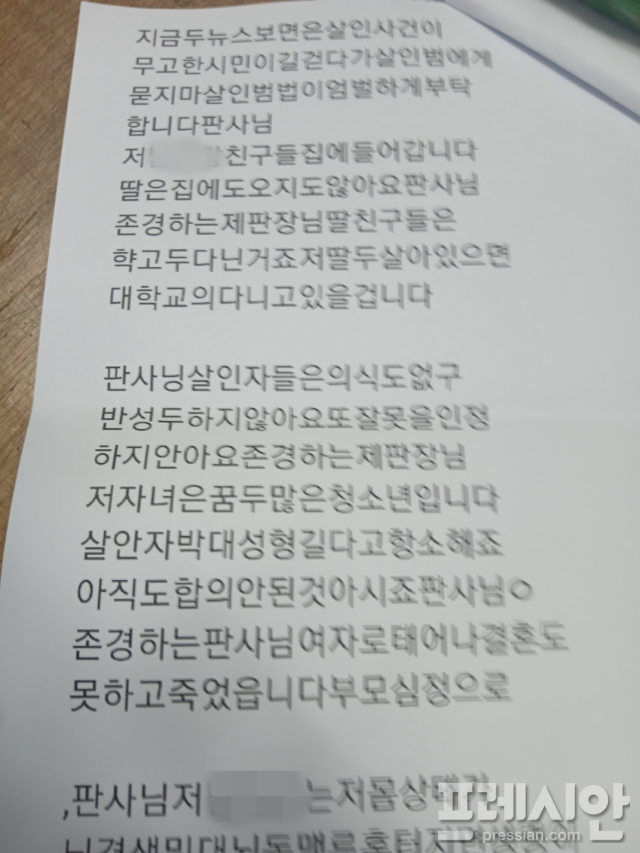 지금두뉴스보면은살인사건이
무고한시민이길걷다가살인범에게
묻지마살인범법이엄벌하게부탁
합니다판사님
저 친구들집에들어갑니다
딸은집에도오지도않아요판사님
존경하는제판장님딸친구들은
햑고두다닌거죠저딸두살아있으면
대학교의다니고있을겁니다
판사닝살인자들은의식도없구
반성두하지않아요또잘못을인정
하지안아요존경하는제판장님
저자녀은꿈두많은청소년입니다
살안자박대성형길다고항소해죠
아직도합의안된것아시죠판사님ㅇ
존경하는판사님여자로태어나결혼도
못하고죽었읍니다부모심정으로
,판사님저 는저몸상태가
프레시안
pressian.com